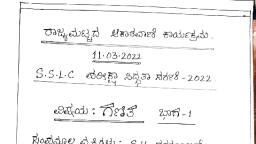 ರಾಜ್ಯಮಟ್ಟದ ಆಕಾಶವಾಣಿ ಕಾರ್ಯಕ್ರಮ.
11-03-2022
S.S.L.C ಪರೀಕ್ಷಾ ಸಿದ್ಧತಾ ಸರಣಿ -2022
ವಿಷಯ: ಗಣಿತ ಭಾಗ-1